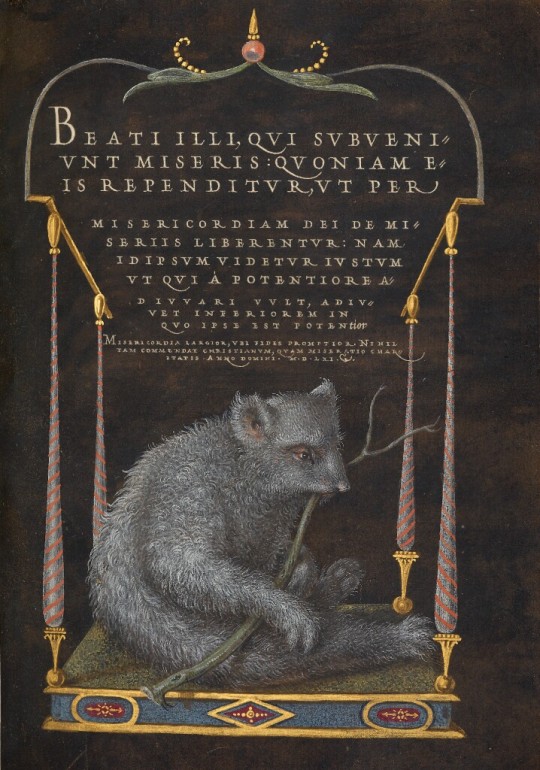 BEATI ILLI, QVI SVBVENI=
VNT MISERIS: QVONIAM E=
IS REPENDITVR, VT PER
MISERICORDIAM DEI DE MI=
SERIIS LIBERENTVR: NAM
ID IPSVM VIDETVR IVSTVM
VT QVI À POTENTIORE A=
DIVVARI VVLT, ADIV=
VET INFERIOREM IN
QVO IPSE EST POTENtior
MISERICORDIA LARGIOR, VBI FIDES PROMPTIOR. NIHIL
TAM COMMENDAT CHRISTIANVM, QVAM MISERATIO CHARI
TATIS. ANNO DOMINI.